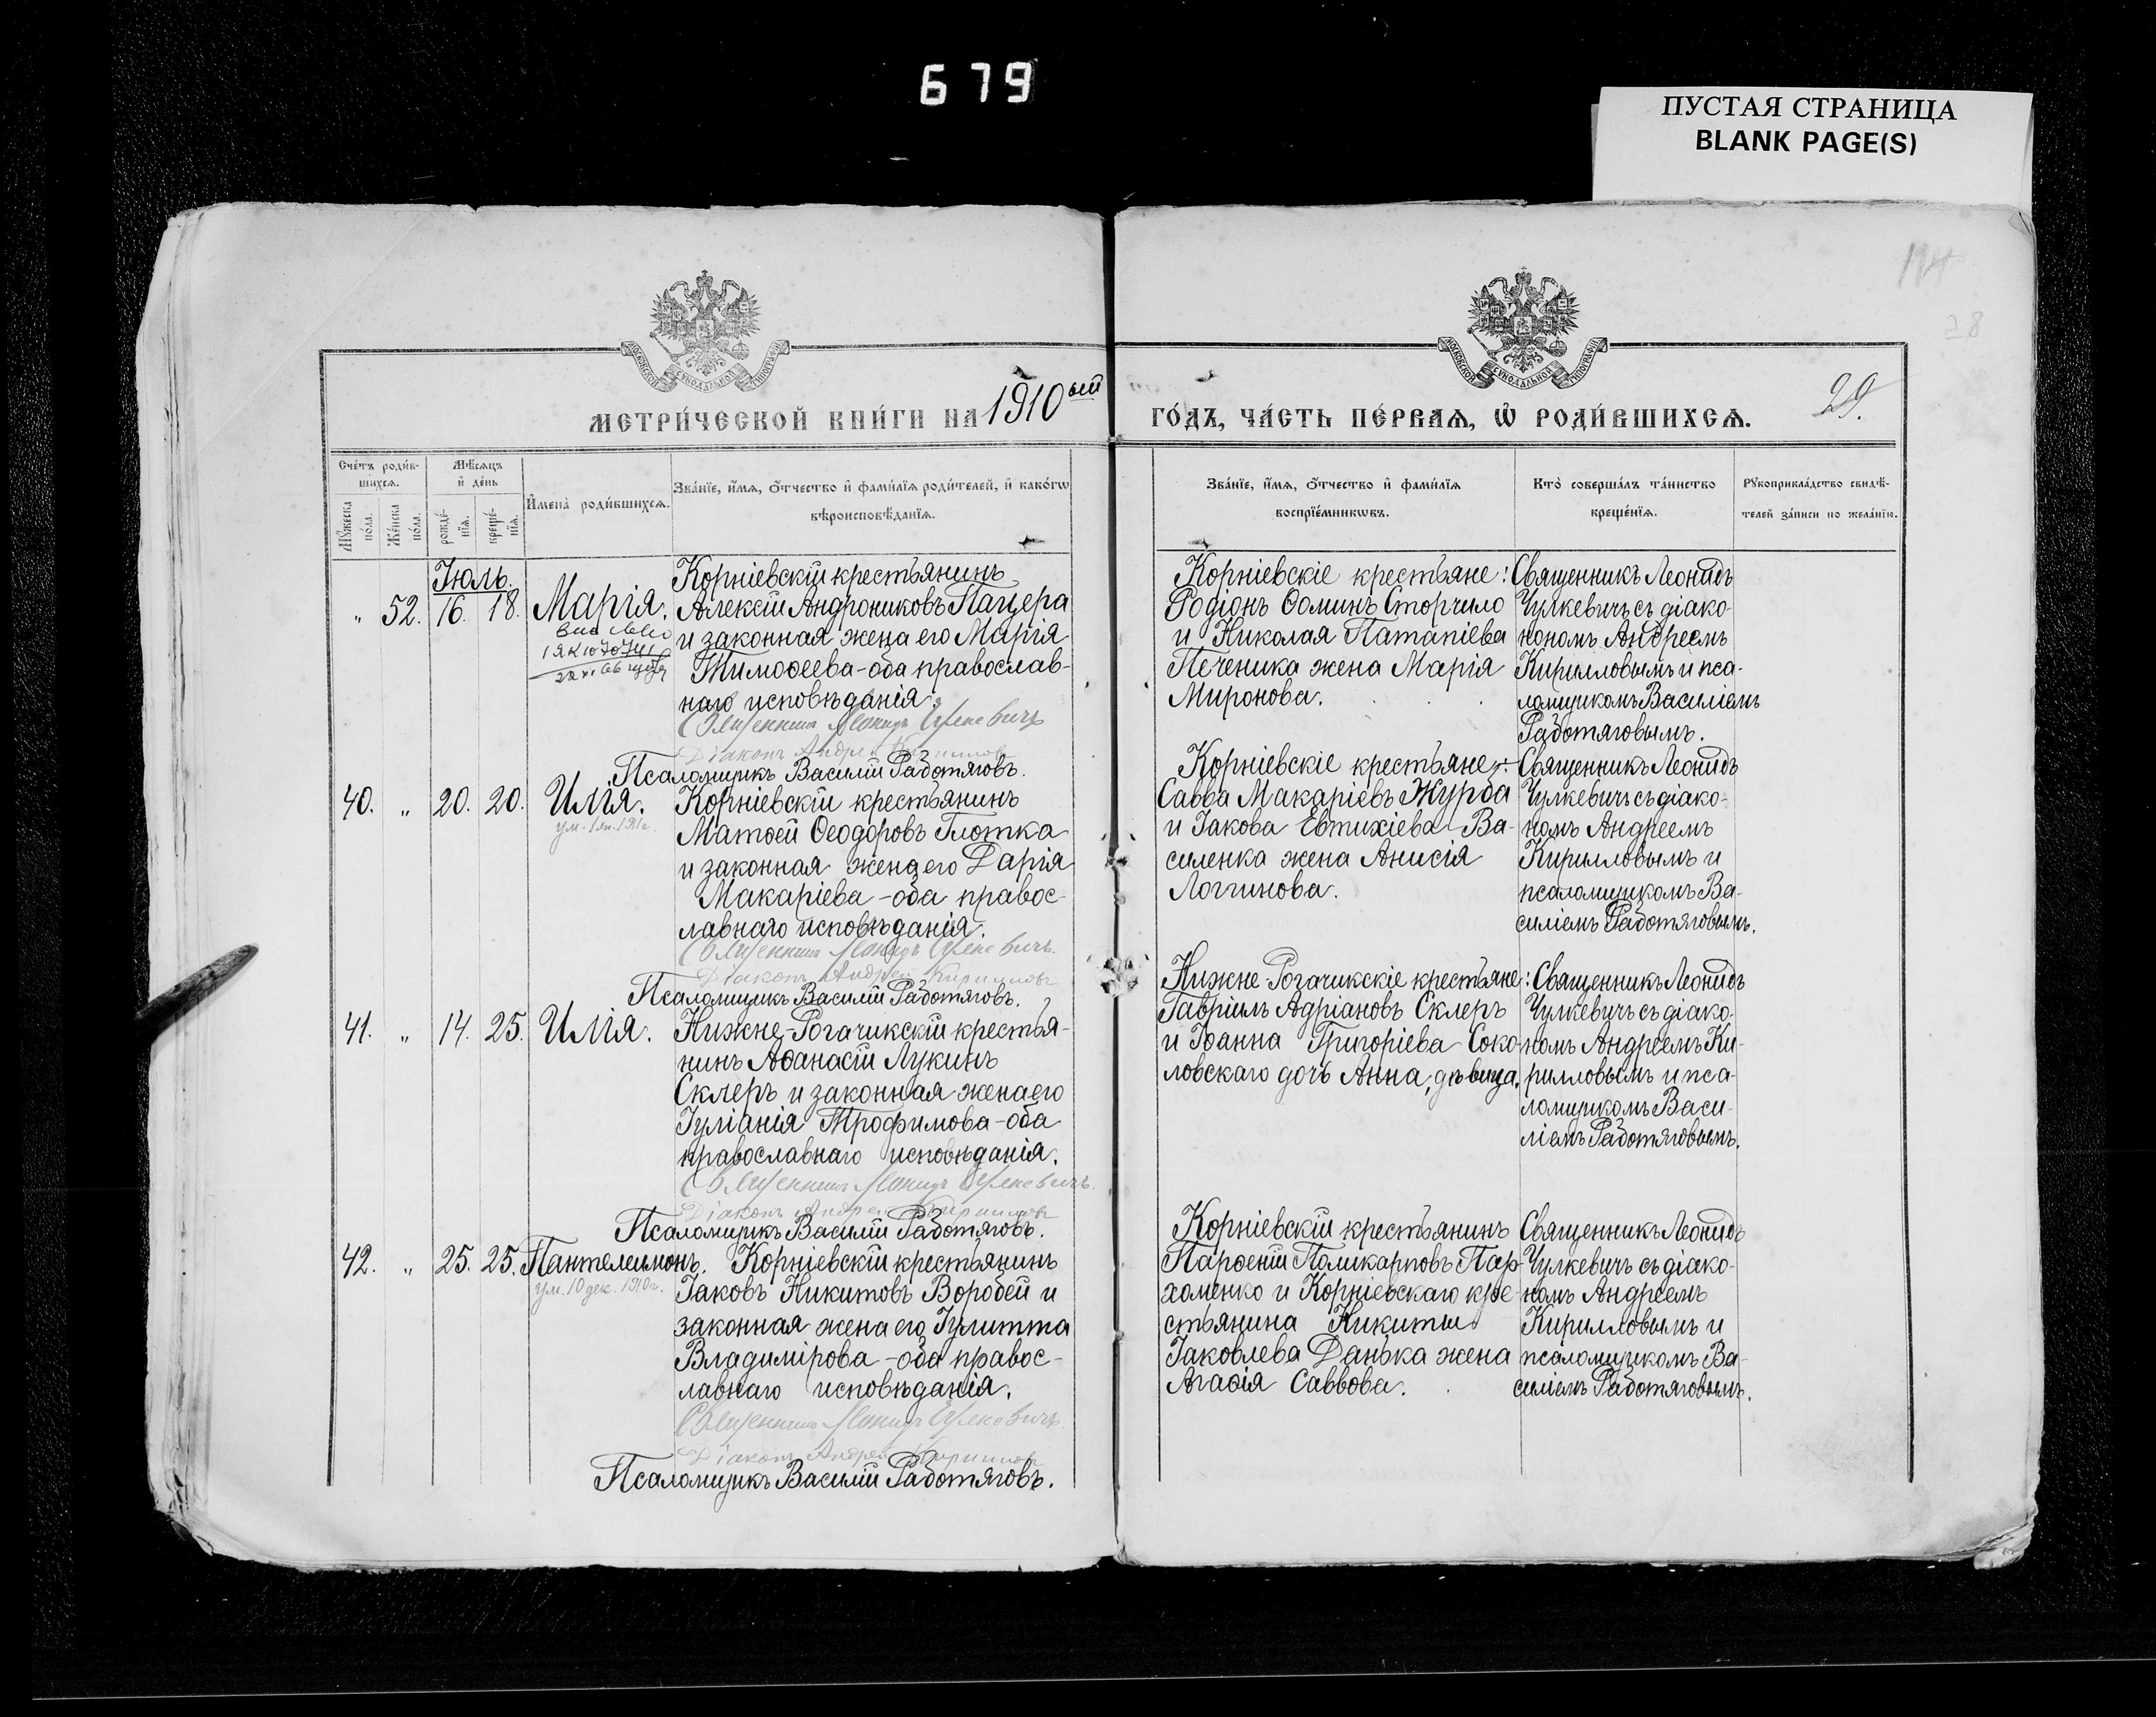 679
ПУСТАЯ СТРАНИЦА
BLANK PAGE(S)
28
МОСКОВСКОЙ СѴНОДАЛЬНОЙ ТИПОГРАФІИ
МОСКОВСКОЙ СѴНОДАЛЬНОЙ ТИПОГРАФІИ
МЕТРИ́ЧЕСКОЙ КНИ́ГИ НА 1910ый
ГО́ДЪ, ЧА́СТЬ ПЕ́РВАѦ, Ѡ҆ РОДИ́ВШИХСѦ.
29.
Сче́тъ роди́в-
шихсѧ.
Мꙋ́жеска по́ла.
Же́нска по́ла.
Мѣ́сѧцъ
и҆ де́нь
рожде́-
нїѧ.
креще́-
нїѧ.
И҆мена̀ роди́вшихсѧ.
Зва́нїе, и҆́мѧ, ѻ҆́тчество и҆ фами́лїѧ роди́телей, и҆ како́гѡ
вѣроисповѣ́данїѧ.
Зва́нїе, и҆́мѧ, ѻ҆́тчество и҆ фами́лїѧ
воспрїе́мникѡвъ.
Кто̀ соверша́лъ та́инство
креще́нїѧ.
Рꙋкоприкла́дство свидѣ́-
телей за́писи по жела́нїю.
Іюль.
" 52. 16. 18. Марія.
Корніевскій крестьянинъ
Алексій Андрониковъ Пацера
и законная жена его Марія
Тимоѳеева-оба православ-
наго исповѣданія.
Священникъ Леонидъ Чулкевичъ
Діаконъ Андрей Кирилловъ
Псаломщикъ Василій Работяговъ.
Корніевскіе крестьяне:
Родіонъ Ѳоминъ Сторчило
и Николая Патапіева
Печеника жена Марія
Миронова.
Священникъ Леонидъ
Чулкевичъ съ діако-
нономъ Андреемъ
Кирилловымъ и пса-
ломщикомъ Василіемъ
Работяговымъ.
40. " 20. 20. Илія.
ум. 1 ян. 1911г.
Корніевскій крестьянинъ
Матѳей Ѳеодоровъ Глотка
и законная жена его Дарія
Макаріева-оба правос-
лавнаго исповѣданія.
Священникъ Леонидъ Чулкевичъ.
Діаконъ Андрей Кирилловъ
Псаломщикъ Василій Работяговъ.
Корніевскіе крестьяне:
Савва Макаріевъ Журба
и Іакова Евтихіева Ва-
силенка жена Анисія
Логгинова.
Священникъ Леонидъ
Чулкевичъ съ діако-
номъ Андреемъ
Кирилловымъ и
псаломщикомъ Ва-
силіемъ Работяговымъ.
41. " 14. 25. Илія.
Нижне-Рогачикскій крестья-
нинъ Аѳанасій Лукинъ
Склеръ и законная жена его
Іуліанія Трофимова-оба
православнаго исповѣданія.
Священникъ Леонидъ Чулкевичъ.
Діаконъ Андрей Кирилловъ
Псаломщикъ Василій Работяговъ.
Нижне-Рогачикскіе крестьяне:
Гавріилъ Адріановъ Склеръ
и Іоанна Григоріева Соко-
ловскаго дочь Анна, дѣвица.
Священникъ Леонидъ
Чулкевичъ съ діако-
номъ Андреемъ Ки-
рилловымъ и пса-
ломщикомъ Васи-
ліемъ Работяговымъ.
42. " 25. 25. Пантелеимонъ.
ум. 10 дек. 1910г.
Корніевскій крестьянинъ
Іаковъ Никитовъ Воробей и
законная жена его Іулитта
Владимірова-оба правос-
лавнаго исповѣданія.
Священникъ Леонидъ Чулкевичъ.
Діаконъ Андрей Кирилловъ
Псаломщикъ Василій Работяговъ.
Корніевскій крестьянинъ
Парѳеній Поликарповъ Пар-
хоменко и Корніевскаго кре-
стьянина Никиты
Іаковлева Данька жена
Агаѳія Саввова.
Священникъ Леонидъ
Чулкевичъ съ діако-
номъ Андреемъ
Кирилловымъ и
псаломщикомъ Ва-
силіемъ Работяговымъ.